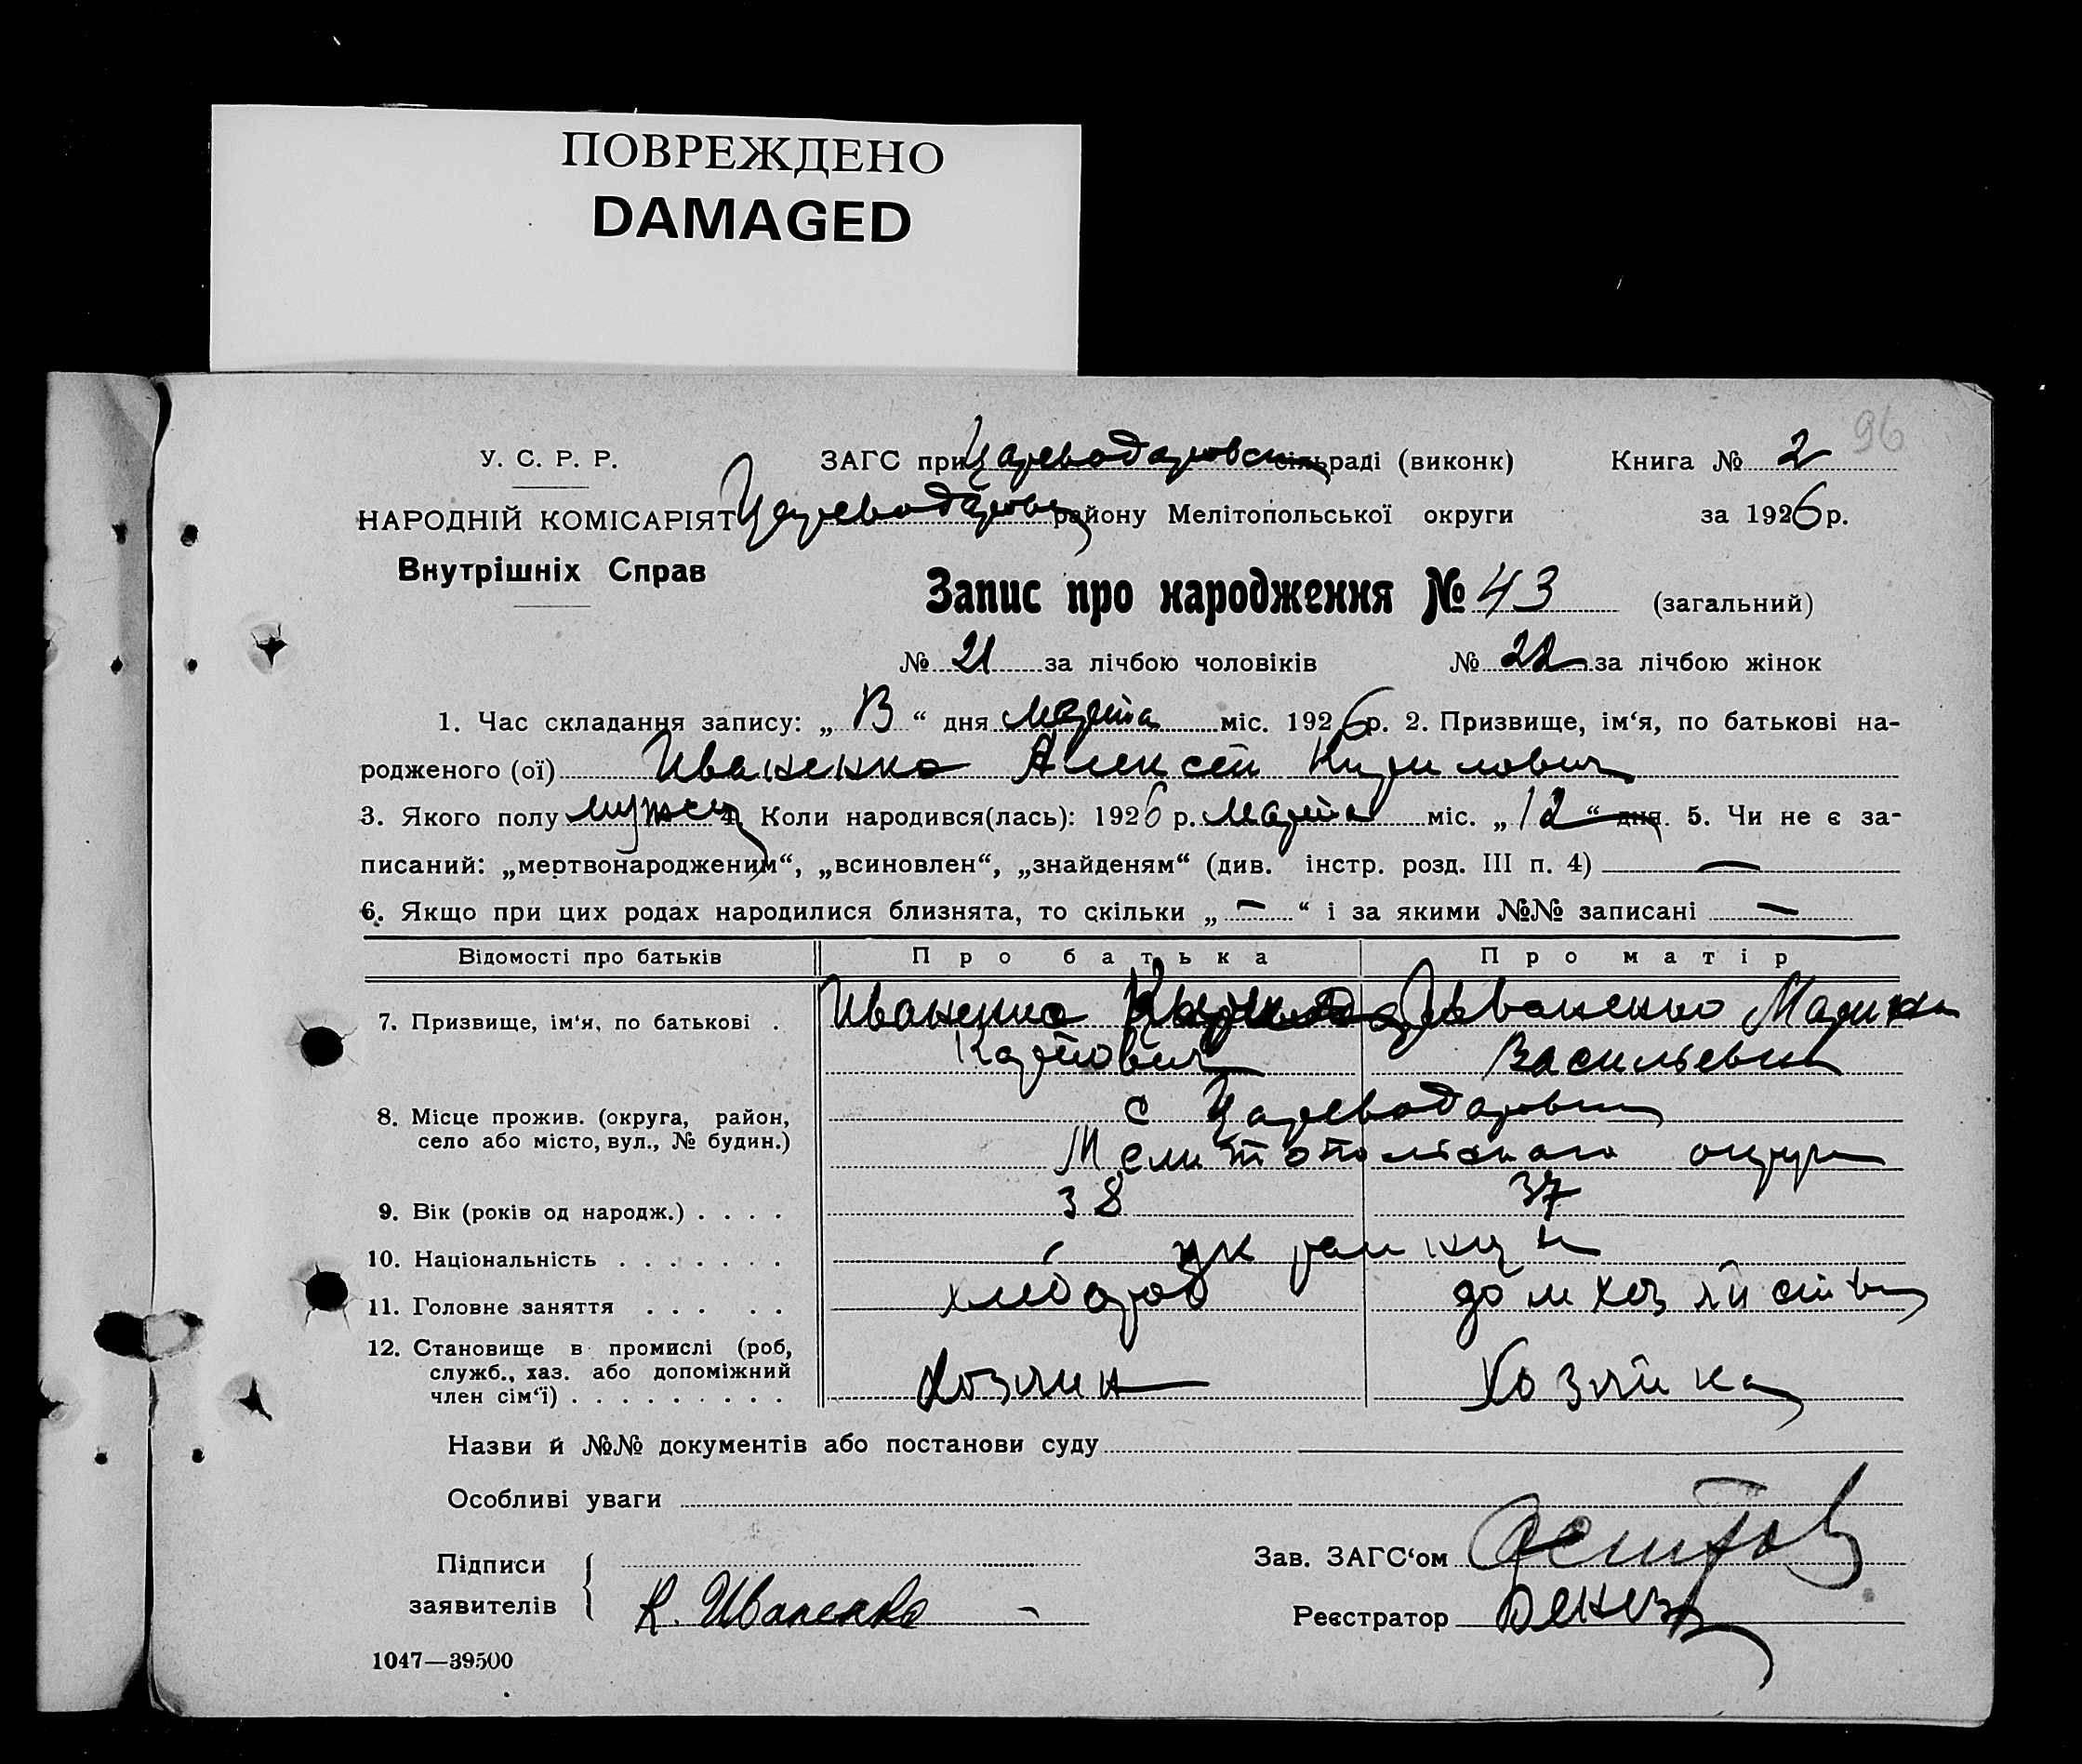 ПОВРЕЖДЕНО
DAMAGED
96
У. С. Р. Р.
ЗАГС при Цареводаровск сільраді (виконк)
Книга № 2
НАРОДНІЙ КОМІСАРІЯТ
Цареводаровск району Мелітопольської округи
за 1926 р.
Внутрішніх Справ
Запис про народження № 43 (загальний)
№ 21 за лічбою чоловіків № 22 за лічбою жінок
1. Час складання запису: „ 13 “ дня марта міс. 1926 р. 2. Призвище, ім‘я, по батькові на-
родженого (ої) Иваненко Алексей Кирилович
3. Якого полу мужск 4. Коли народився(лась): 1926 р. марта міс. „ 12 “ дня. 5. Чи не є за-
писаний: „мертвонародженим“, „всиновлен“, „знайденям“ (див. інстр. розд. III п. 4) —
6. Якщо при цих родах народилися близнята, то скільки „ — “ і за якими №№ записані —
Відомості про батьків Про батька Про матір
7. Призвище, ім‘я, по батькові . Иваненко Иваненко Марина
Карпович Васильевна
8. Місце прожив. (округа, район, с Цареводаровка
село або місто, вул., № будин.) Мелитопольского округа
9. Вік (років од народж.) . . . . 38 37
10. Національність . . . . . . . украинцы
11. Головне заняття . . . . . хлебороб дом хозяйство
12. Становище в промислі (роб,
служб., хаз. або допоміжний
член сім‘ї) . . . . . . . . . Хозяин Хозяйка
Назви й №№ документів або постанови суду
Особливі уваги
Підписи
Зав. ЗАГС‘ом
заявителів К. Иваненко —
Реєстратор
1047—39500